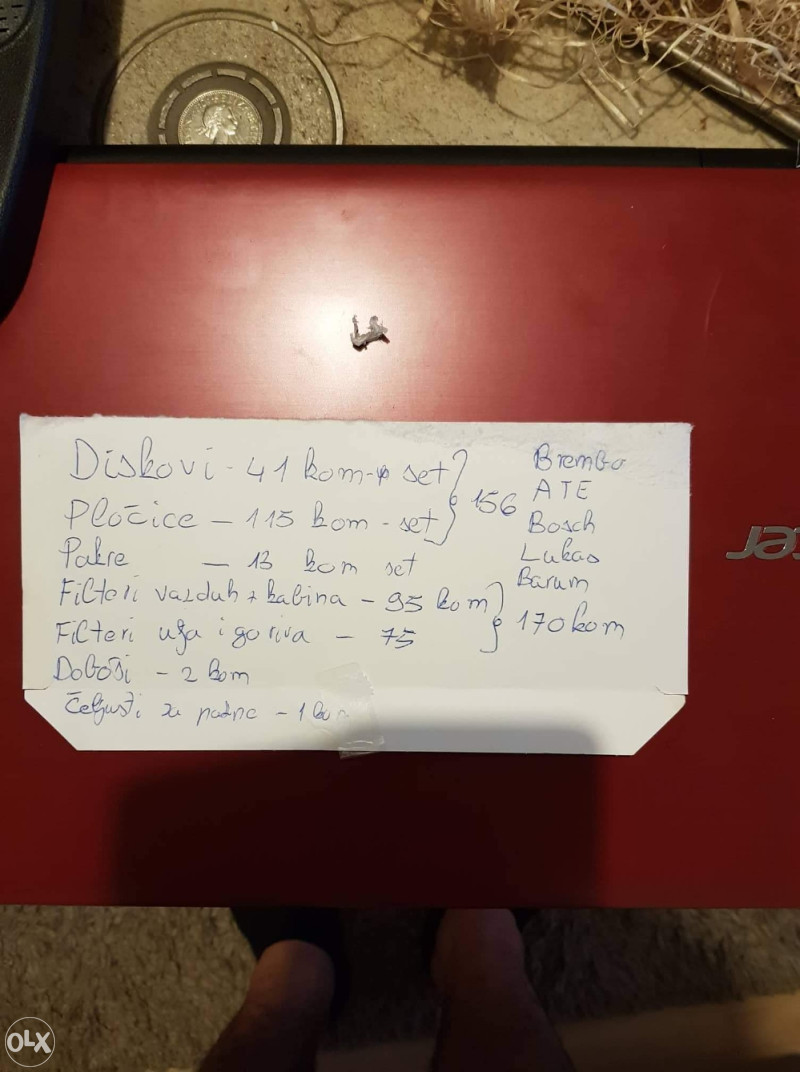 Diskovi - 41 kom - set
Pločice - 115 kom - set
156
Pakne - 13 kom set
Filteri vazduh + kabina - 95 kom
Filteri ulja i goriva - 75
170 kom
Doboši - 2 kom
Čeljusti za pakne - 1 kom
Brembo
ATE
Bosch
Lukas
Barum
acer
OLX